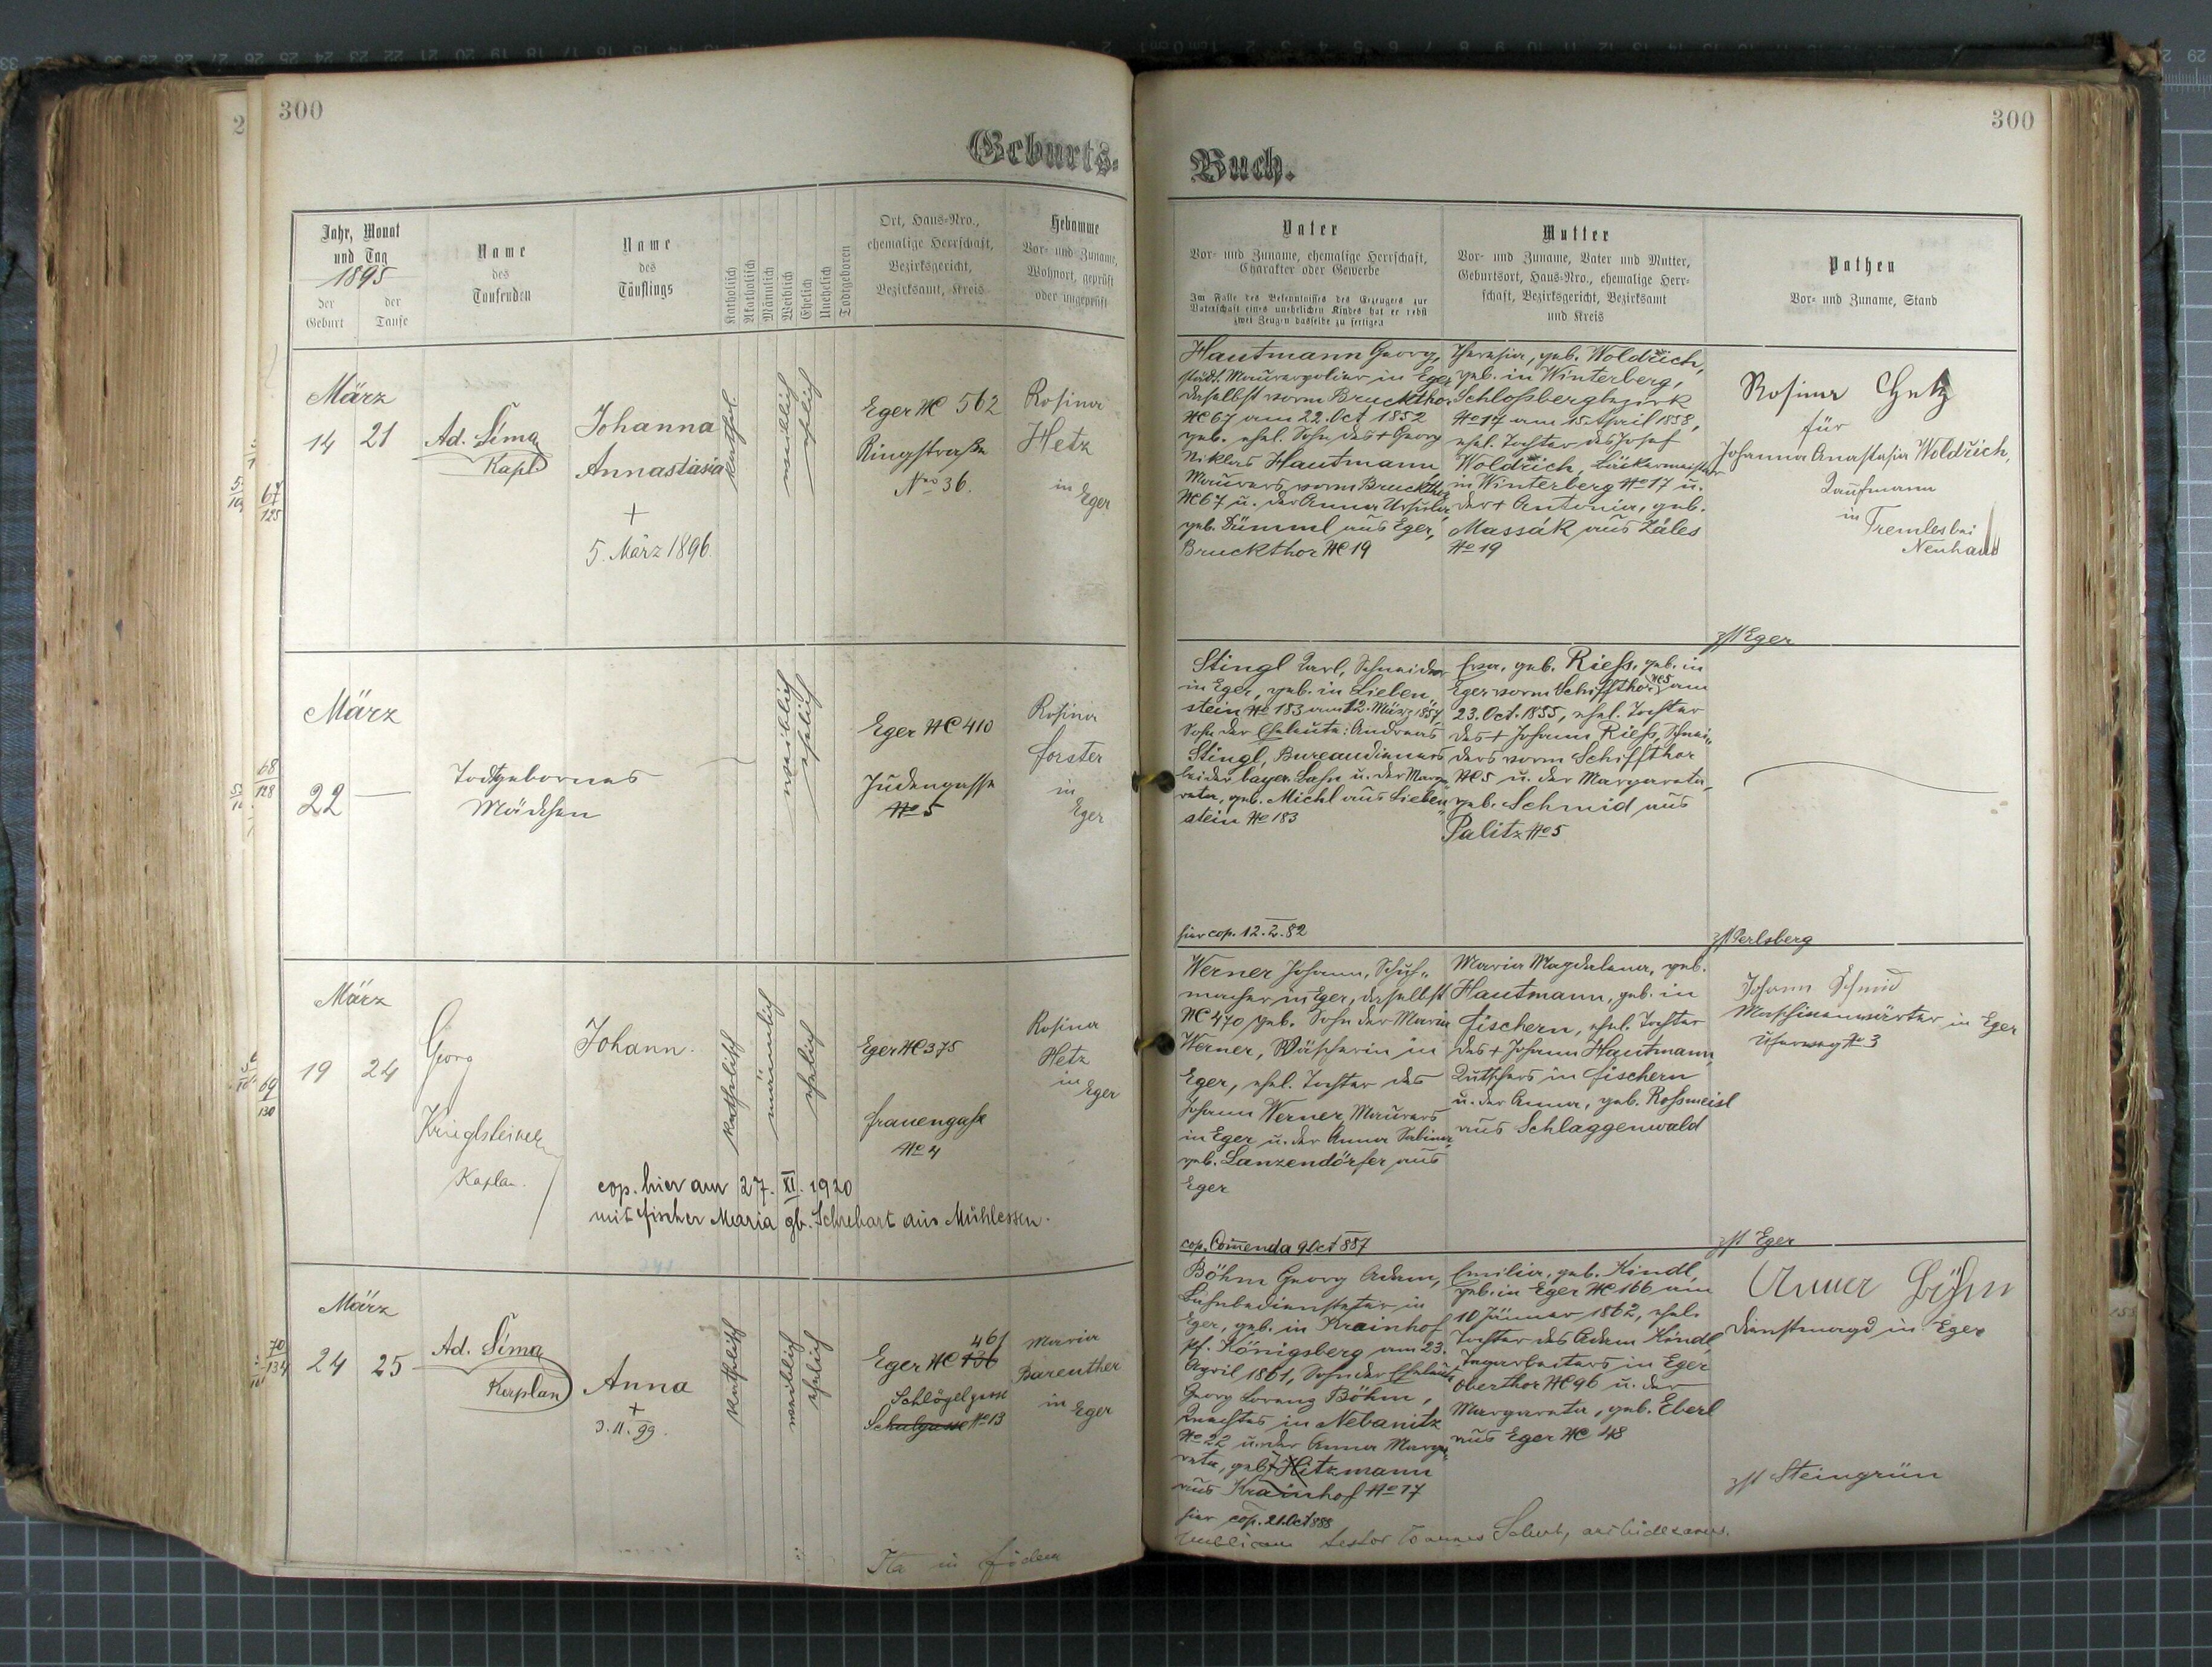 300
Geburts-
Jahr, Monat
und Tag
1895
der
Geburt
der
Taufe
Name
des
Taufenden
Name
des
Täuflings
Katholisch
Akatholisch
Männlich
Weiblich
Ehelich
Unehelich
Todtgeboren
Ort, Haus-Nro.,
ehemalige Herrschaft,
Bezirksgericht,
Bezirksamt, Kreis
Hebamme
Vor- und Zuname,
Wohnort, geprüft
oder ungeprüft
März
14 21
Ad. Síma
Kapl
Johanna
Annastásia
+
5. März 1896.
kathol.
weiblich
ehelich
Eger NC 562
Ringstraße
Nro 36.
Rosina
Hetz
in
Eger
67
125
März
22 —
Todtgebornes
Mädchen
weiblich
ehelich
Eger NC 410
Judengasse
No 5
Rosina
Forster
in
Eger
68
128
März
19 24
Georg
Krieglsteiner
Kaplan.
Johann.
katholisch
männlich
ehelich
Eger NC 375
Frauengasse
No 4
Rosina
Hetz
in
Eger
69
130
cop. hier am 27. XI. 1920
mit Fischer Maria gb. Schrehart aus Mühlessen.
März
24 25
Ad. Síma
Kaplan
Anna
+
3.11.99.
katholisch
weiblich
ehelich
461
Eger NC 436
Schlögelgasse
Schulgasse No 13
Maria
Barenther
in
Eger
70
134
Ita in fidem
300
Buch.
Vater
Vor- und Zuname, ehemalige Herrschaft,
Charakter oder Gewerbe
Im Falle des Bekenntnisses des Erzeugers zur
Vaterschaft eines unehelichen Kindes hat er nebst
zwei Zeugen dasselbe zu fertigen
Mutter
Vor- und Zuname, Vater und Mutter,
Geburtsort, Haus-Nro., ehemalige Herr-
schaft, Bezirksgericht, Bezirksamt
und Kreis
Pathen
Vor- und Zuname, Stand
Hautmann Georg,
städt. Maurerpolier in Eger,
daselbst vorm Bruckthor
NC 67 am 22. Oct 1852
geb. ehel. Sohn des + Georg
Niklas Hautmann,
Maurers vorm Bruckthor
NC 67 u. der Anna Ursula,
geb. Dümml aus Eger,
Bruckthor NC 19
Theresia, geb. Woldřich,
geb. in Winterberg,
Schloßbergbezirk
No 17 am 15. April 1858,
ehel. Tochter des Josef
Woldřich, Bäckermeister
in Winterberg No 17 u.
der + Antonia, geb.
Massák aus Záles
No 19
Rosina Hetz
für
Johanna Anastasia Woldřich,
Kaufmann
in
Tremles bei
Neuhaus
zst Eger
Stingl Karl, Schneider
in Eger, geb. in Lieben
stein No 183 am 12. März 1857,
Sohn der Eheleute: Andreas
Stingl, Bureaudieners
bei der bayer. Bahn u. der Marga
reta, geb. Michl aus Lieben
stein No 183
hier cop. 12.2.82
Eva, geb. Rieß, geb. in
Eger vorm Schiffthor NC5 am
23. Oct. 1855, ehel. Tochter
des + Johann Rieß, Schnei„
ders vorm Schiffthor
NC 5 u. der Margareta,
geb. Schmid aus
Palitz No 5
zst Perlsberg
Werner Johann, Schuh„
macher in Eger, daselbst
NC 470 geb. Sohn der Maria
Werner, Wäscherin in
Eger, ehel. Tochter des
Johann Werner, Maurers
in Eger u. der Anna Sabina,
geb. Lanzendörfer aus
Eger
cop. Com̄enda 9 Oct 887
Maria Magdalena, geb.
Hautmann, geb. in
Fischern, ehel. Tochter
des + Johann Hautmann,
Kutschers in Fischern
u. der Anna, geb. Roßmeisl
aus Schlaggenwald
Johann Schmid
Maschinenwärter in Eger
Uferweg No 3
zst Eger
Böhm Georg Adam,
Bahnbediensteter in
Eger, geb. in Krainhof
Pf. Königsberg am 23.
April 1861, Sohn der Eheleute
Georg Lorenz Böhm,
Knechtes in Nebanitz
No 22 u. der Anna Marga„
reta, geb. Hitzmann
aus Krainhof No 17
hier cop. 21. Oct 888
Emilia, geb. Kindl,
geb. in Eger NC 166 am
10 Jänner 1862, ehel.
Tochter des Adam Kindl,
Tagarbeiters in Eger
Oberthor NC 96 u. der
Margareta, geb. Eberl
aus Eger NC 48
Anna Böhm
Dienstmagd in Eger
zst Steingrün
publicam testor